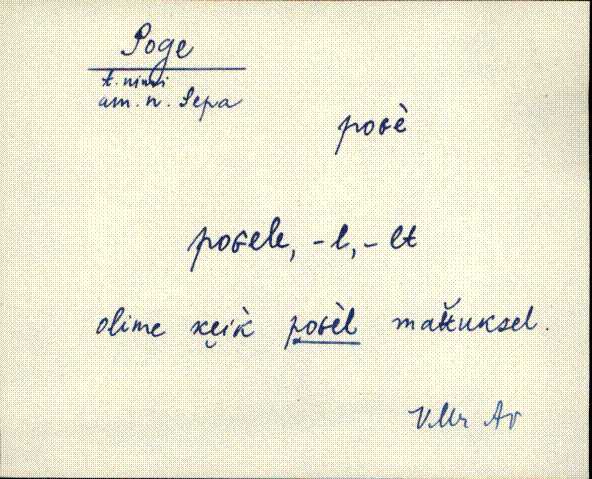 Poge
t. nimi
am. n. Sepa
poɢè
poɢele, -l, -lt
olime kęik poɢèl mat̆tuksel.
VMr Ar